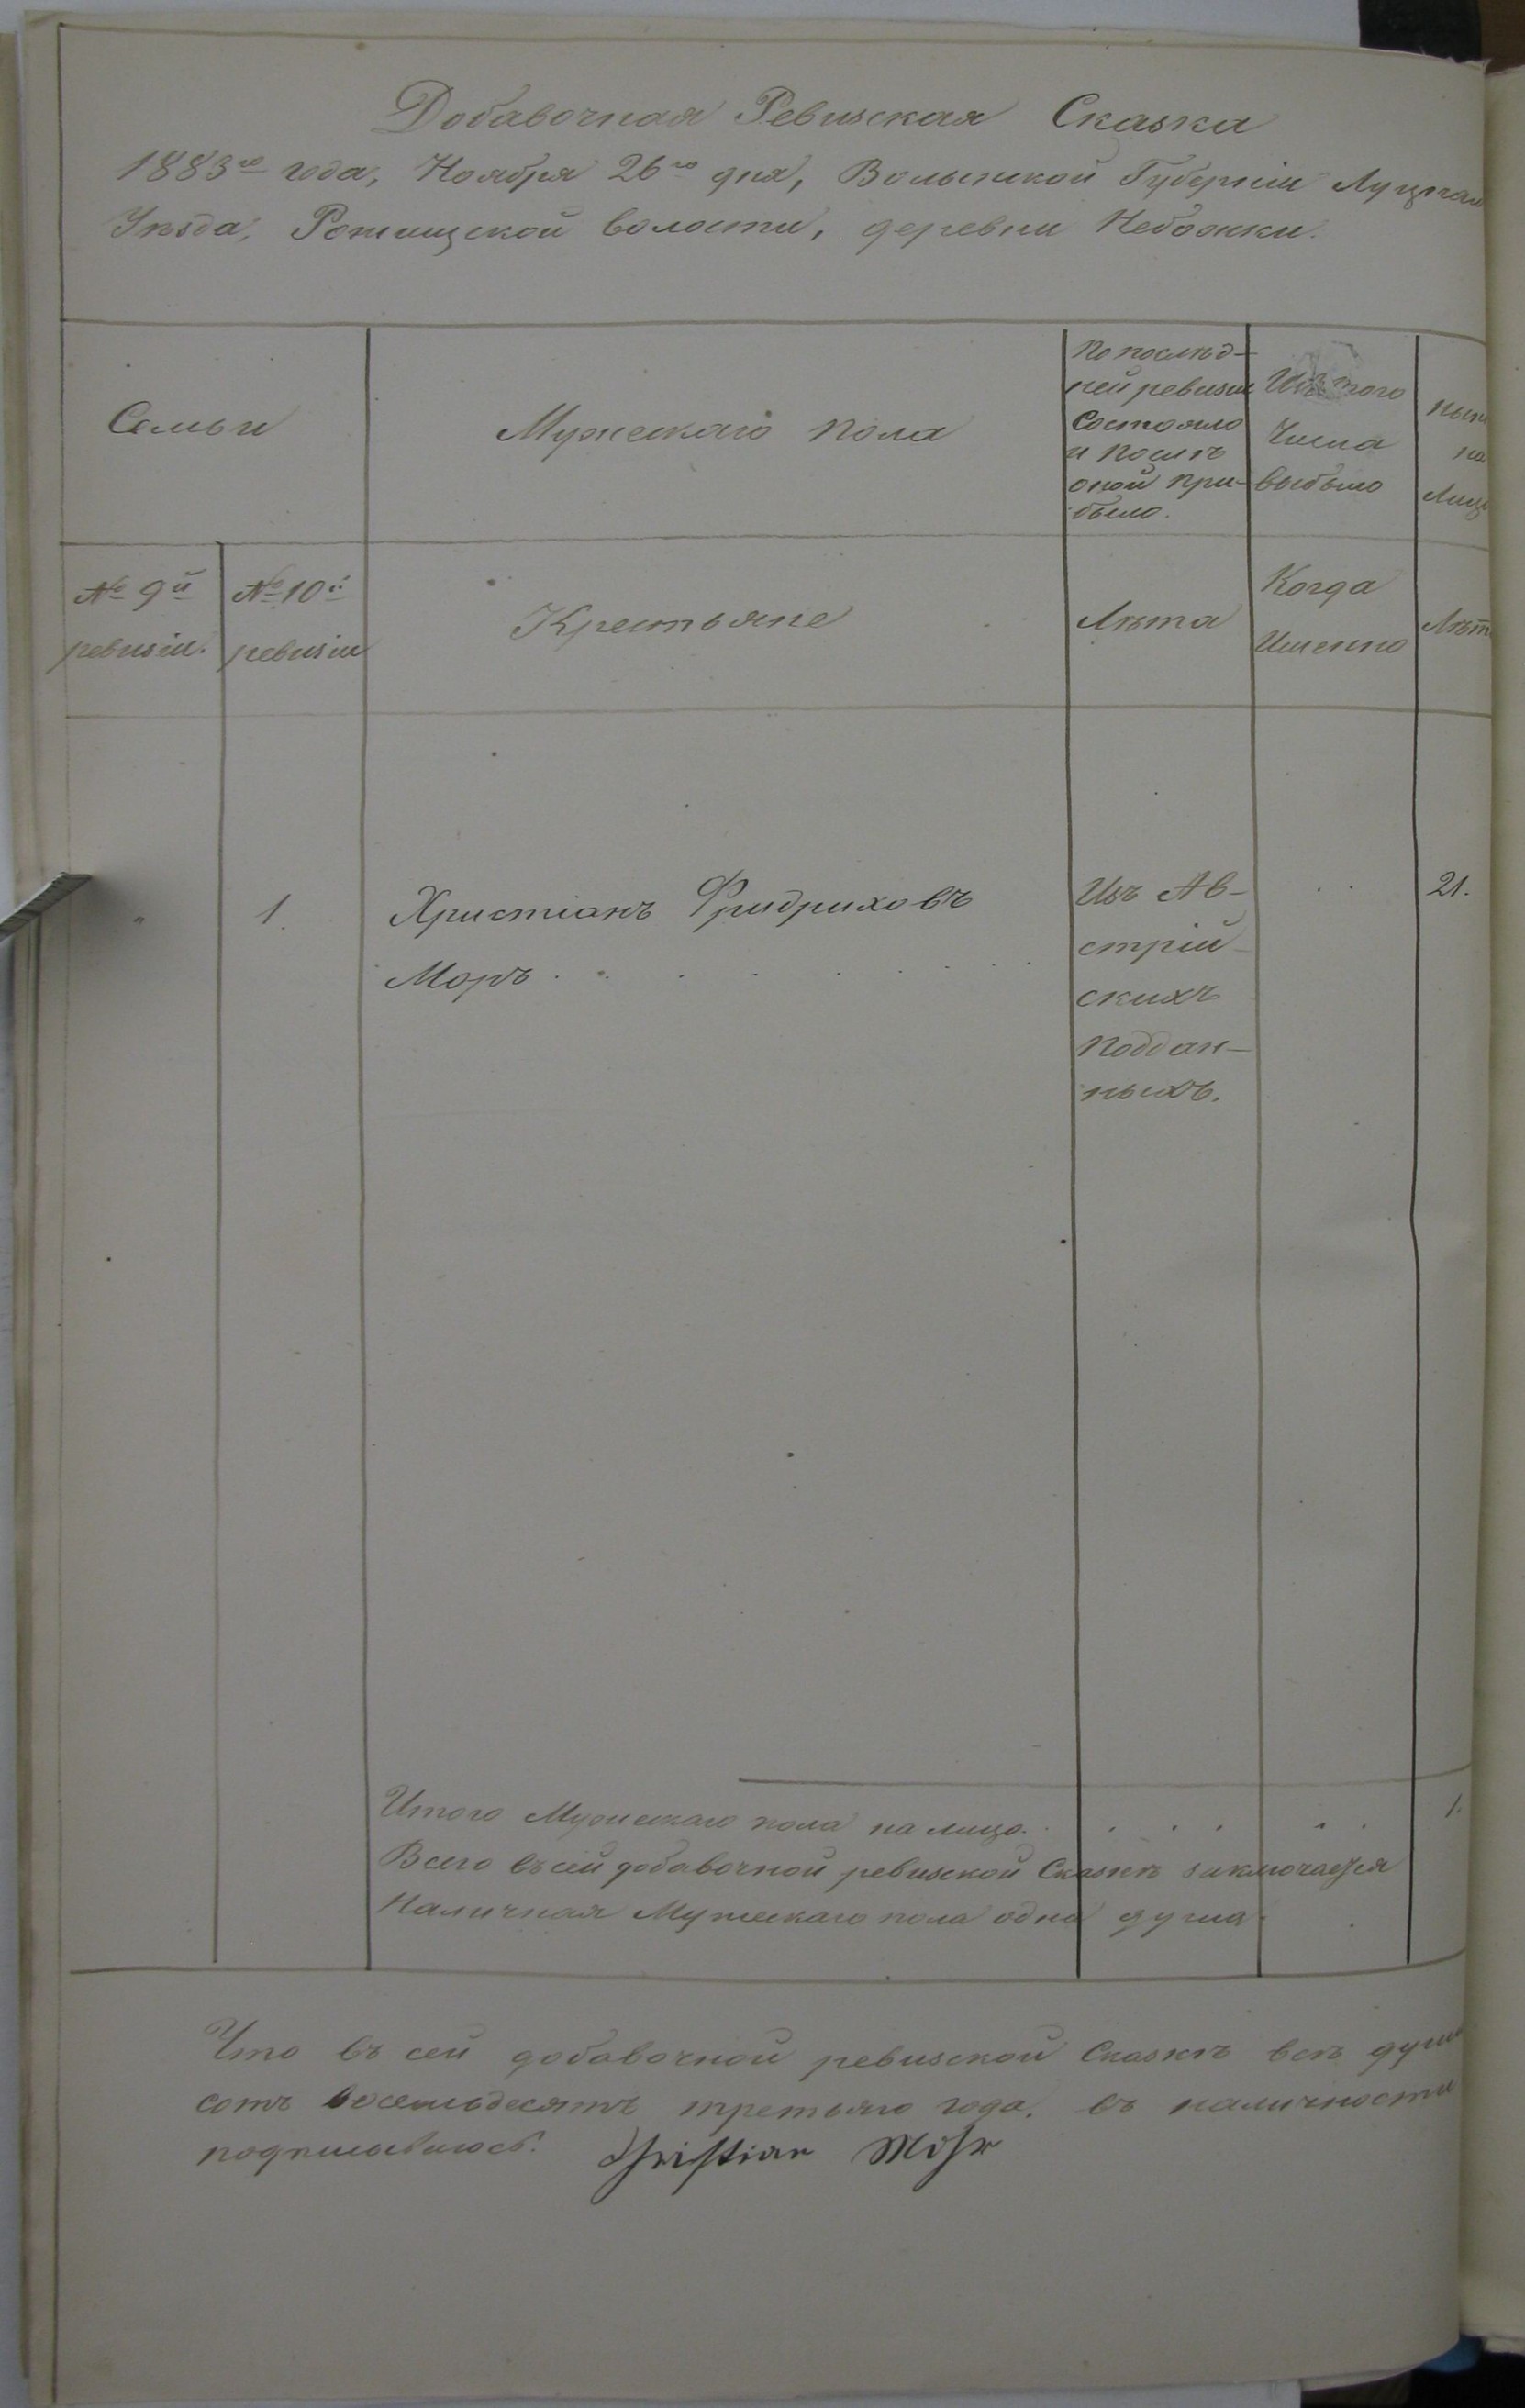 Добавочная Ревизская Сказка
1883го года, Ноября 26го дня, Волынской Губерніи Луцкаго
Уѣзда, Рожищской волости, деревни Небожки.
Семьи
Мужескаго пола
По послѣд-
ней ревизіи
Состояло
и послѣ
оной при-
было.
Изъ того
Числа
выбыло
ныне
на
Лицо
№ 9й
ревизіи.
№ 10й
ревизіи
Крестьяне
Лѣта
Когда
Именно
Лѣта
"
1.
Христіанъ Фридриховъ
Моръ
Изъ Ав-
стрій-
скихъ
поддан-
ныхъ.
21.
Итого Мужескаго пола на лицо.
1.
Всего въ сей добавочной ревизской Сказкѣ заключается
Наличная Мужескаго пола одна душа.
Что въ сей добавочной ревизской Сказкѣ всѣ души
сотъ восемьдесятъ третьяго года, въ наличности
подписываюсь. Christian Mohr